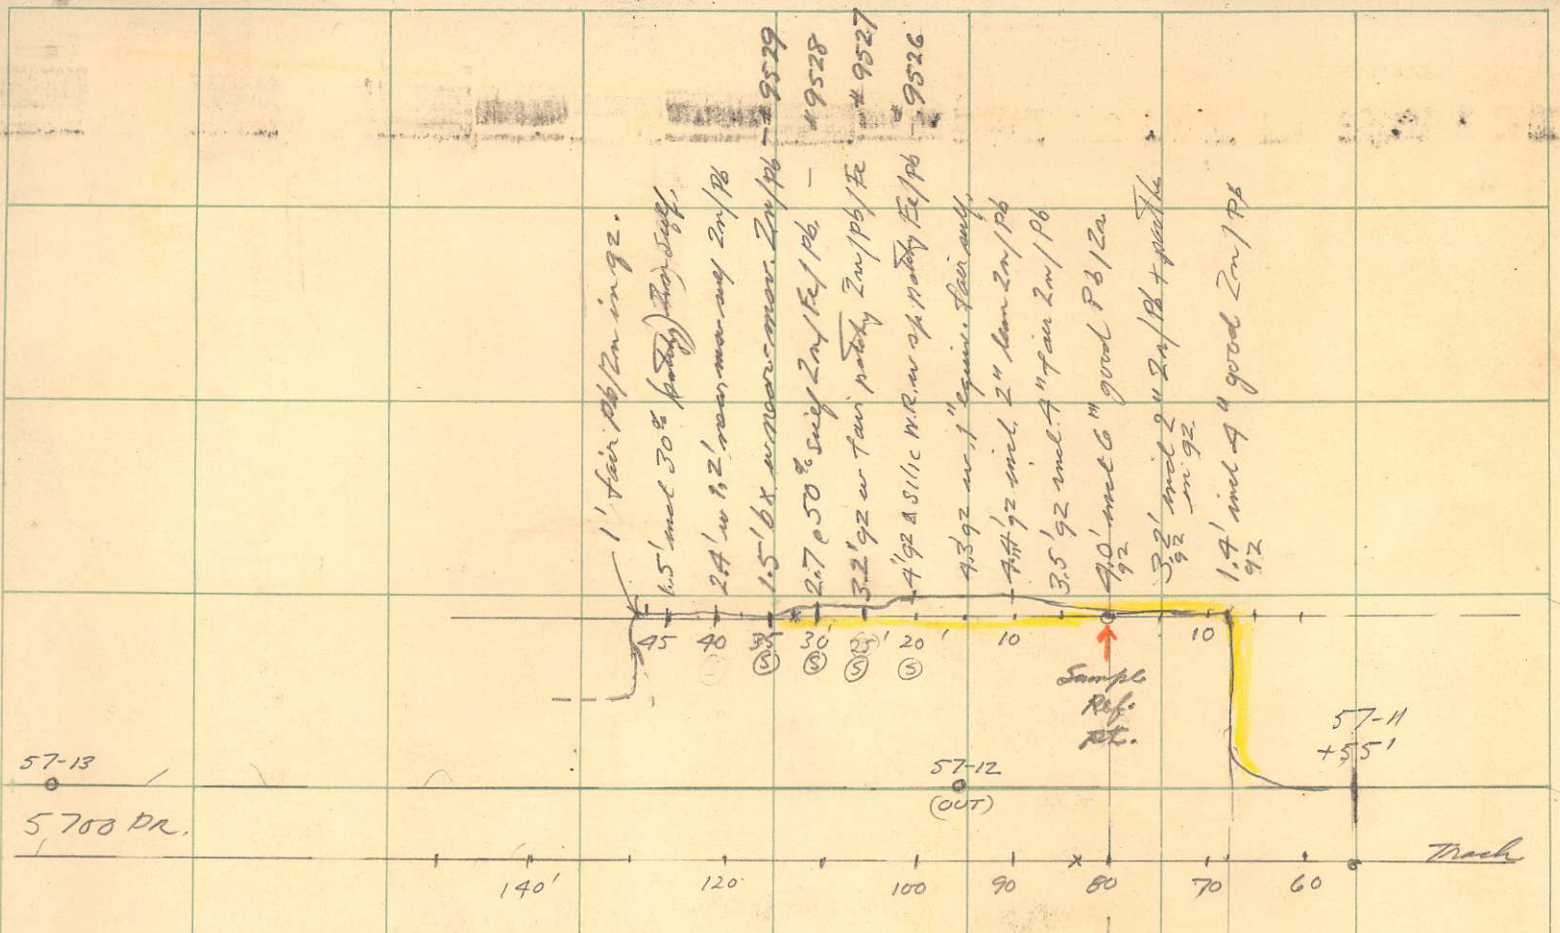 1' fair Pb/Zn in qz.
1.5' incl 30% patchy Zn sulf.
2.4' w 1.2' near mas sulf Zn/Pb
1.5' bx w near-mas. Zn/Pb - #9529
2.7 @ 50% sulf Zn/Fe/Pb. - #9528
3.2' qz w fair patchy Zn/Pb/Fe - #9527
4' qz & silic W.R. w sp patchy Fe/Pb - #9526
4.3 qz w 1" equiv. fair sulf.
4.4' qz incl. 2" lean Zn/Pb
3.5' qz incl. 4" fair Zn/Pb
4.0' incl 6" good Pb/Zn
qz
3.2' incl 2" Zn/Pb +
qz in qz
1.4' incl 4" good Zn/Pb
qz
45 40 35 30' 25' 20' 10 10
S S S S
Sample
Ref.
pt.
57-11
+55'
57-13
57-12
(OUT)
5700 DR.
Track
140' 120 100 90 80 70 60